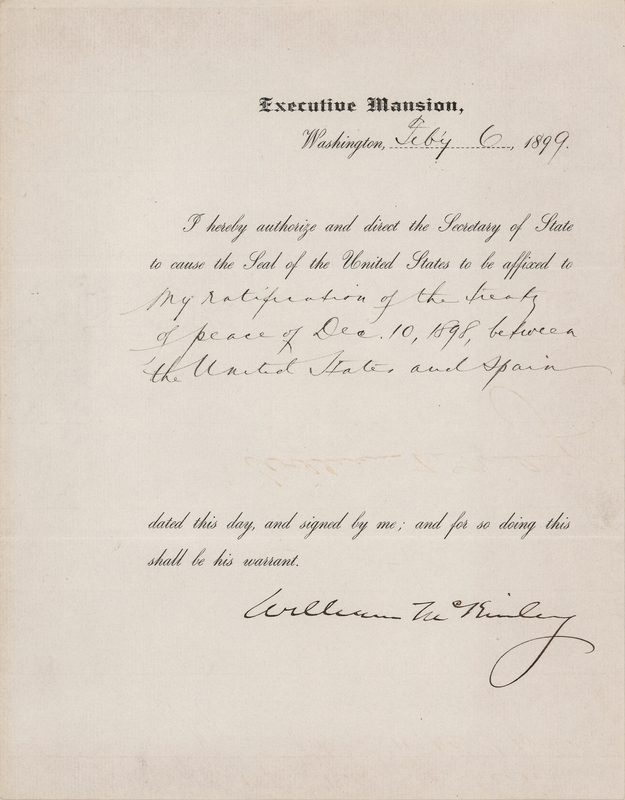 Executive Mansion,
Washington, Feb'y 6, 1899.
I hereby authorize and direct the Secretary of State
to cause the Seal of the United States to be affixed to
my ratification of the treaty
of peace of Dec. 10, 1898, between
the United States and Spain
dated this day, and signed by me; and for so doing this
shall be his warrant.
William McKinley